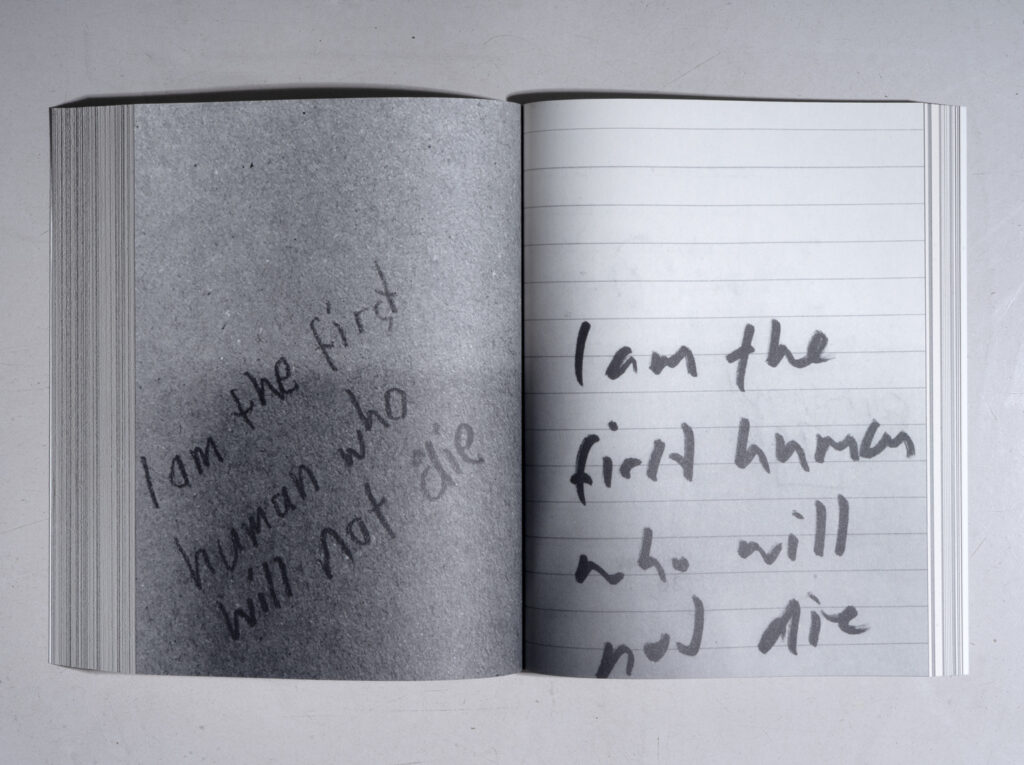 I am the first
human who
will not die
I am the
first human
who will
not die